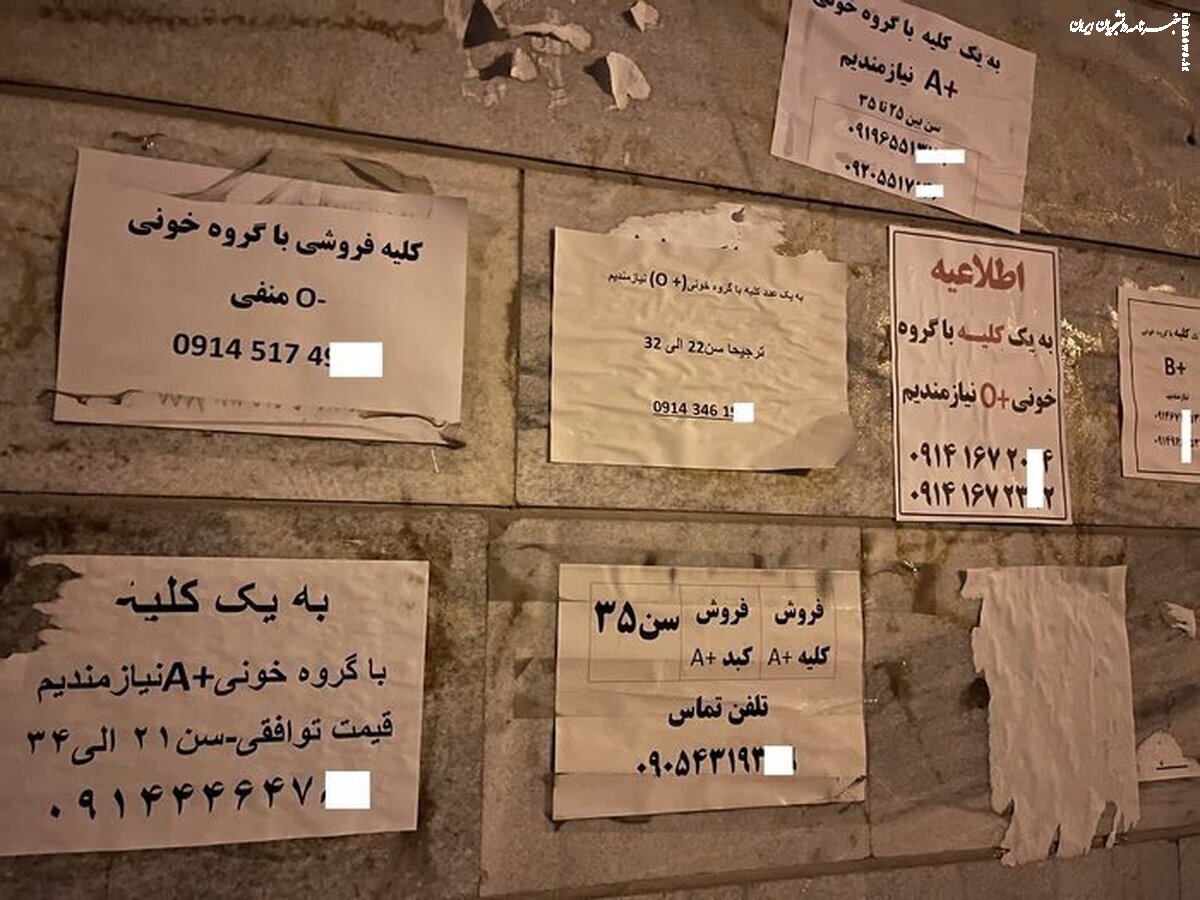 خبرنامه دانشجویان ایران
به یک کلیه با گروه خونی
A+ نیازمندیم
سن بین ۲۵ تا ۳۵
۰۹۱۹۶۵۵۱۳
۰۹۲۰۵۵۱۷
کلیه فروشی با گروه خونی
O- منفی
0914 517 49
به یک عدد کلیه با گروه خونی(O +) نیازمندیم
ترجیحا سن22 الی 32
0914 346 19
اطلاعیه
به یک کلیه با گروه
خونی+O نیازمندیم
۰۹۱۴ ۱۶۷ ۲۰ ۴
۰۹۱۴ ۱۶۷ ۲۳ ۲
کلیه با گروه خونی
B+
نیازمندیم
به یک کلیه
با گروه خونی+Aنیازمندیم
قیمت توافقی-سن۲۱ الی۳۴
۰۹۱۴۴۴۶۴۷
فروش کلیه +A
فروش کبد +A
سن۳۵
تلفن تماس
۰۹۰۵۴۳۱۹۳